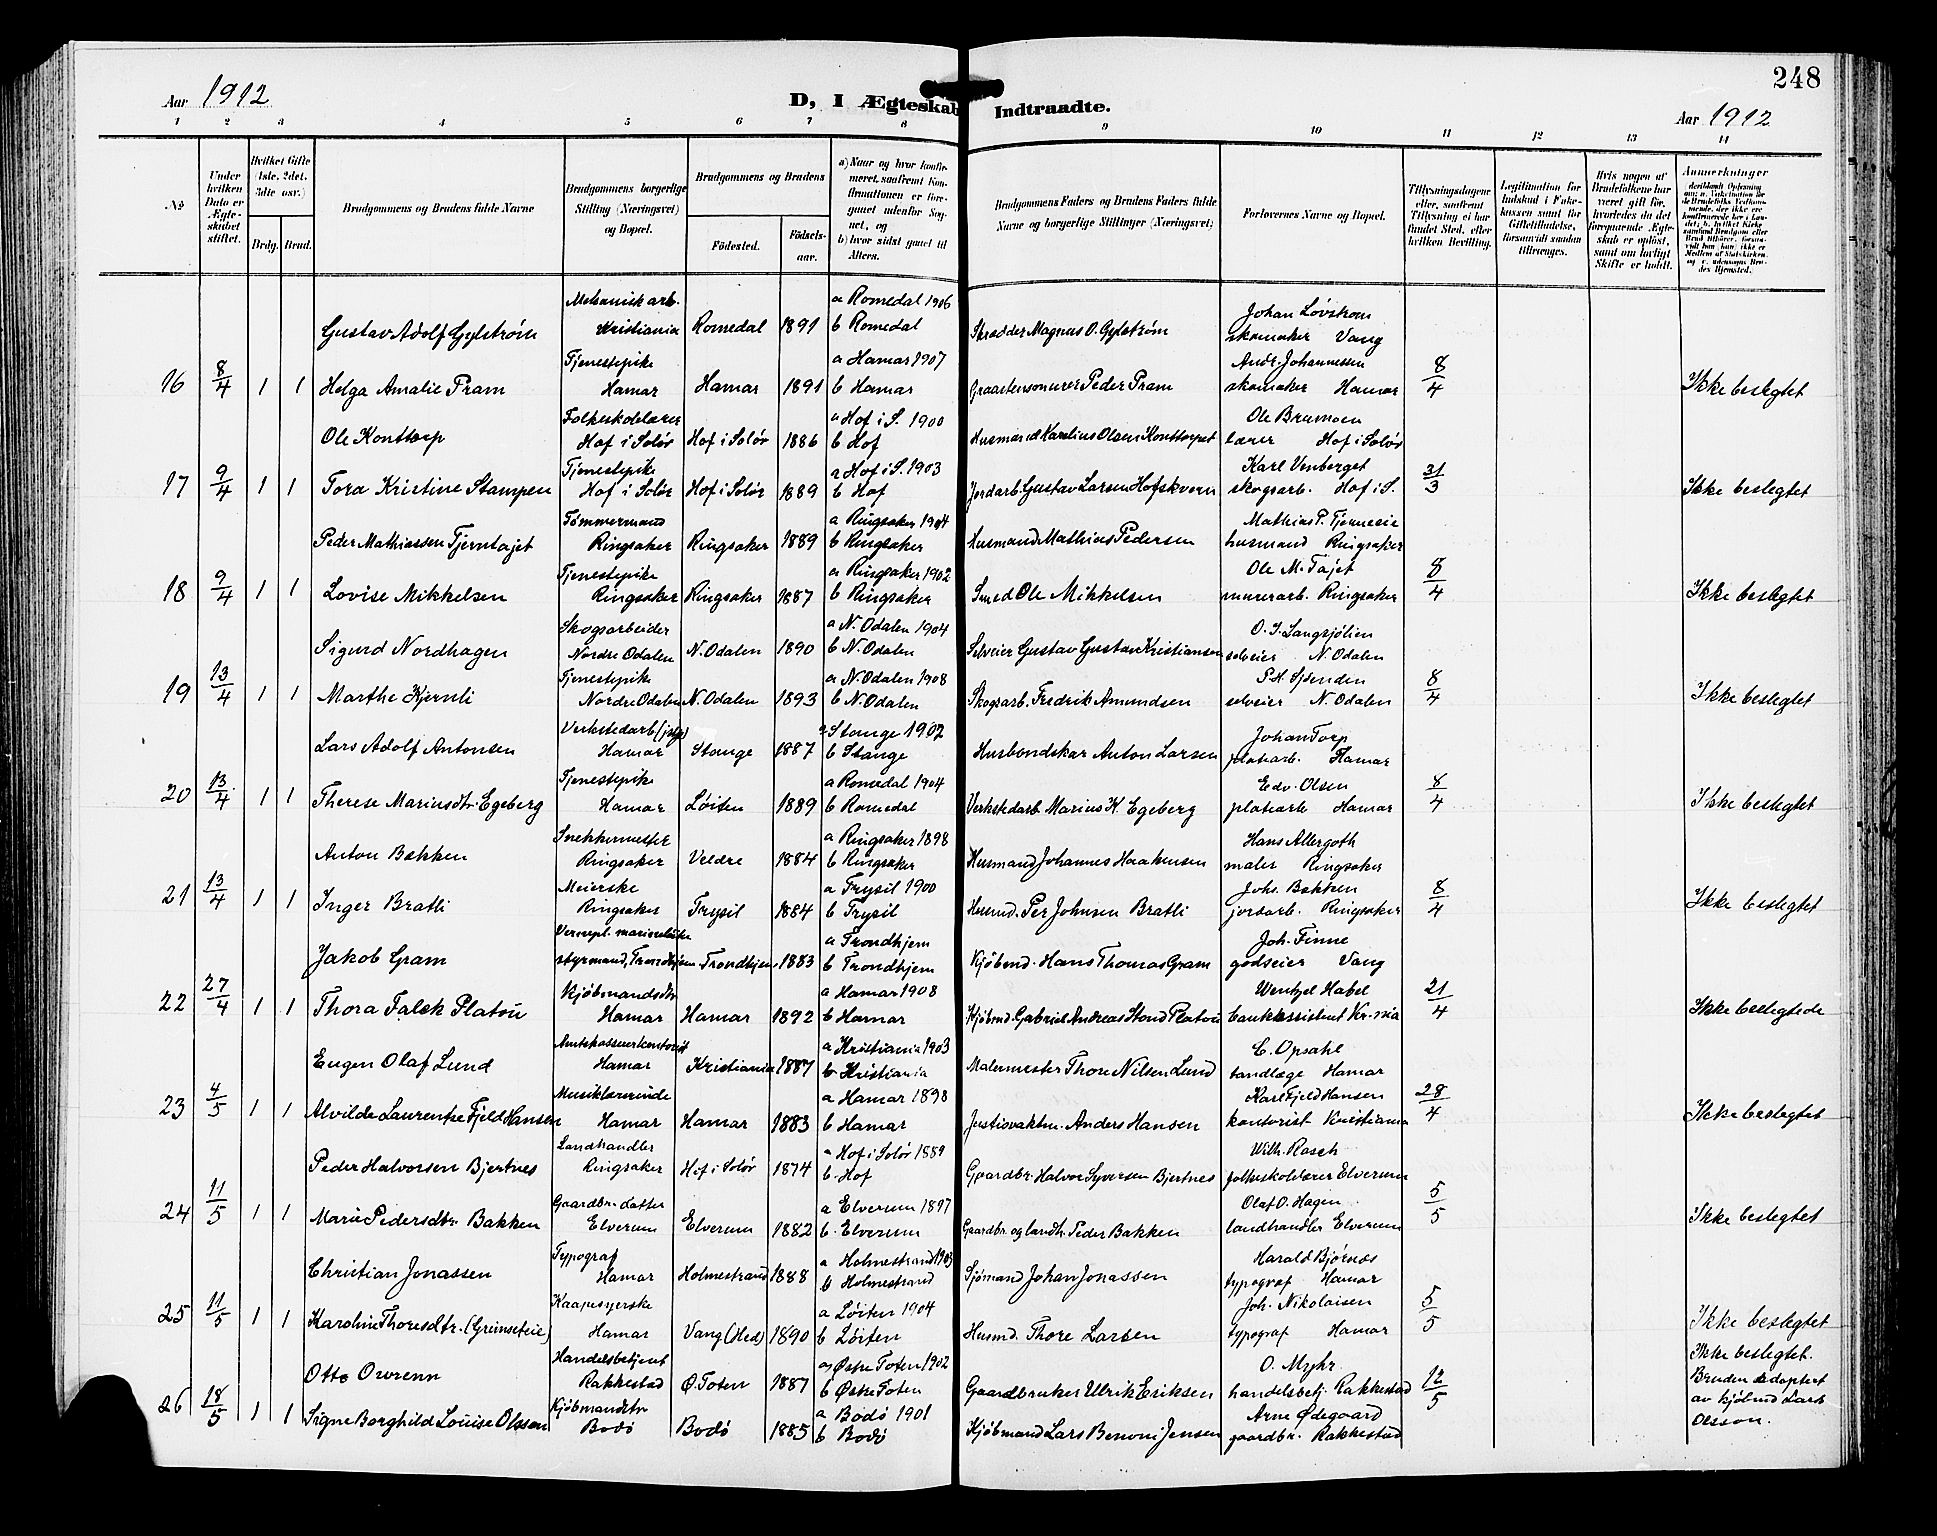 248
Aar 1912
D, I Ægteskab Indtraadte.
Aar 1912
1 2 3 4 5 6 7 8 9 10 11 12 13 14
№
Under hvilken Dato er Ægteskabet stiftet.
Hvilket Gifte (1ste, 2det, 3die osv.)
Brdg. Brud.
Brudgommens og Brudens fulde Navne
Brudgommens borgerlige Stilling (Næringsvei) og Bopæl.
Brudgommens og Brudens
Fødested.
Fødselsaar.
a) Naar og hvor konfirmeret, saafremt Konfirmationen er foregaaet udenfor Sognet, og
b) hvor sidst gaaet til Alters.
Brudgommens Faders og Brudens Faders fulde Navne og borgerlige Stillinger (Næringsvei)
Forlovernes Navne og Bopæl.
Tillysningsdagene eller, saafremt Tillysning ei har fundet Sted, efter hvilken Bevilling.
Legitimation for Indskud i Fakekassen samt for Giftetilladelse, forsaavidt saadan tiltrænges.
Hvis nogen af Brudefolkene har været gift før, hvorledes da det foregaaende Ægteskab er opløst, samt om lovligt Skifte er holdt.
Anmerkninger
Gustav Adolf Gylstrøm Mekanisk arb. Kristiania Romedal 1891 a Romedal 1906 b Romedal Skrædder Magnus O. Gylstrøm Johan Løvstrom skomaker Vang
16 8/4 1 1 Helga Amalie Fram Tjenestepike Hamar Hamar 1891 a Hamar 1907 b Hamar Graastensmurer Peder Fram Andr. Johannessen skomaker Hamar 8/4 Ikke beslegtet
Ole Konttorp Folkeskolelærer Hof i Solør Hof i Solør 1886 a Hof i S. 1900 b Hof Husmand Karelius Olsen Konttorpet Ole Brumoen lærer Hof i Solør
17 9/4 1 1 Tora Kristine Stampen Tjenestepike Hof i Solør Hof i Solør 1889 a Hof i S. 1903 b Hof Jordarb. Gustav Larsen Hofskvern Karl Venberget skogsarb. Hof i S. 31/3 Ikke beslegtet
Peder Mathiassen Tjerntajet Tømmermand Ringsaker Ringsaker 1889 a Ringsaker 1904 b Ringsaker Husmand Mathias Pedersen Mathias P. Tjerneeie husmand Ringsaker
18 9/4 1 1 Lovise Mikkelsen Tjenestepike Ringsaker Ringsaker 1887 a Ringsaker 1902 b Ringsaker Smed Ole Mikkelsen Ole M. Tajet murerarb. Ringsaker 8/4 Ikke beslegtet
Sigurd Nordhagen Skogsarbeider Nordre Odalen N. Odalen 1890 a N. Odalen 1904 b N. Odalen Selveier Gustav Gustav Kristiansen O. J. Langsjølien selveier N. Odalen
19 13/4 1 1 Marthe Kjernli Tjenestepike Nordre Odalen N. Odalen 1893 a N. Odalen 1908 b N. Odalen Skogsarb. Fredrik Amundsen P. H. Sjøenden selveier N. Odalen 8/4 Ikke beslegtet
Lars Adolf Antonsen Verkstedarb Hamar Stange 1887 a Stange 1902 b Stange Husbondskar Anton Larsen Johan Torp platearb. Hamar
20 13/4 1 1 Therese Mariusdtr. Egeberg Tjenestepike Hamar Løiten 1889 a Romedal 1904 b Romedal Verkstedarb Marius K. Egeberg Edv. Olsen platearb Hamar 8/4 Ikke beslegtet
Anton Bakken Snekkermester Ringsaker Veldre 1884 a Ringsaker 1898 b Ringsaker Husmand Johannes Haakensen Hans Allergoth maler Ringsaker
21 13/4 1 1 Inger Bratli Meierske Ringsaker Trysil 1884 a Trysil 1900 b Trysil Husmd. Per Johnsen Bratli Johs. Bakken jordarb. Ringsaker 8/4 Ikke beslegtet
Jakob Gram styrmand, Trondhjem Trondhjem 1883 a Trondhjem b Trondhjem Kjøbmd. Hans Thomas Gram Joh. Finne godseier Vang
22 27/4 1 1 Thora Falck Platou Kjøbmandsdtr Hamar Hamar 1892 a Hamar 1908 b Hamar Kjøbmd. Gabriel Andreas Stoud Platou Wentzel Habel bankassistent Kr-nia 21/4 Ikke beslegtede
Eugen Olaf Lund Amtskasserkontorist Hamar Kristiania 1887 a Kristiania 1903 b Kristiania Malermester Thore Nilsen Lund C. Opsahl tandlæge Hamar
23 4/5 1 1 Alvilde Laurentze Fjeld Hansen Musiklærerinde Hamar Hamar 1883 a Hamar 1898 b Hamar Justisvaktm. Anders Hansen Karl Fjeld Hansen kontorist Kristiania 28/4 Ikke beslegtet
Peder Halvorsen Bjertnes Landhandler Ringsaker Hof i Solør 1874 a Hof i Solør 1889 b. Hof Gaardbr. Halvor Syversen Bjertnes Wilh. Rasch folkeskolelærer Elverum
24 11/5 1 1 Marie Pedersdtr. Bakken Gaardbr. datter Elverum Elverum 1882 a Elverum 1897 b. Elverum Gaardbr. og landh. Peder Bakken Olaf O. Hagen landhandler Elverum 5/5 Ikke beslegtet
Christian Jonassen Typograf Hamar Holmestrand 1888 a Holmestrand 1903 b Holmestrand Sjømand Johan Jonassen Harald Bjørnøs typograf Hamar
25 11/5 1 1 Karoline Thoresdtr. (Grimseteie) Kaapesyerske Hamar Vang (Hed) 1890 a Løiten 1904 b Løiten Husmd. Thore Larsen Joh. Nikolaisen typograf Hamar 5/5 Ikke beslegtet
Otto Owrenn Handelsbetjent Rakkestad Ø. Toten 1887 a Østre Toten 1902 b Østre Toten Gaardbruker Ulrik Eriksen O. Myhr. handelsbetj. Rakkestad
26 18/5 1 1 Signe Borghild Louise Olsson Kjøbmandsdtr Bodø Bodø 1885 a Bodø 1901 b Bodø Kjøbmand Lars Benoni Jensen Arne Ødegaard gaardbr. Rakkestad 12/5 Ikke beslegtet. Bruden adoptert av kjøbmd Lars Olsson.